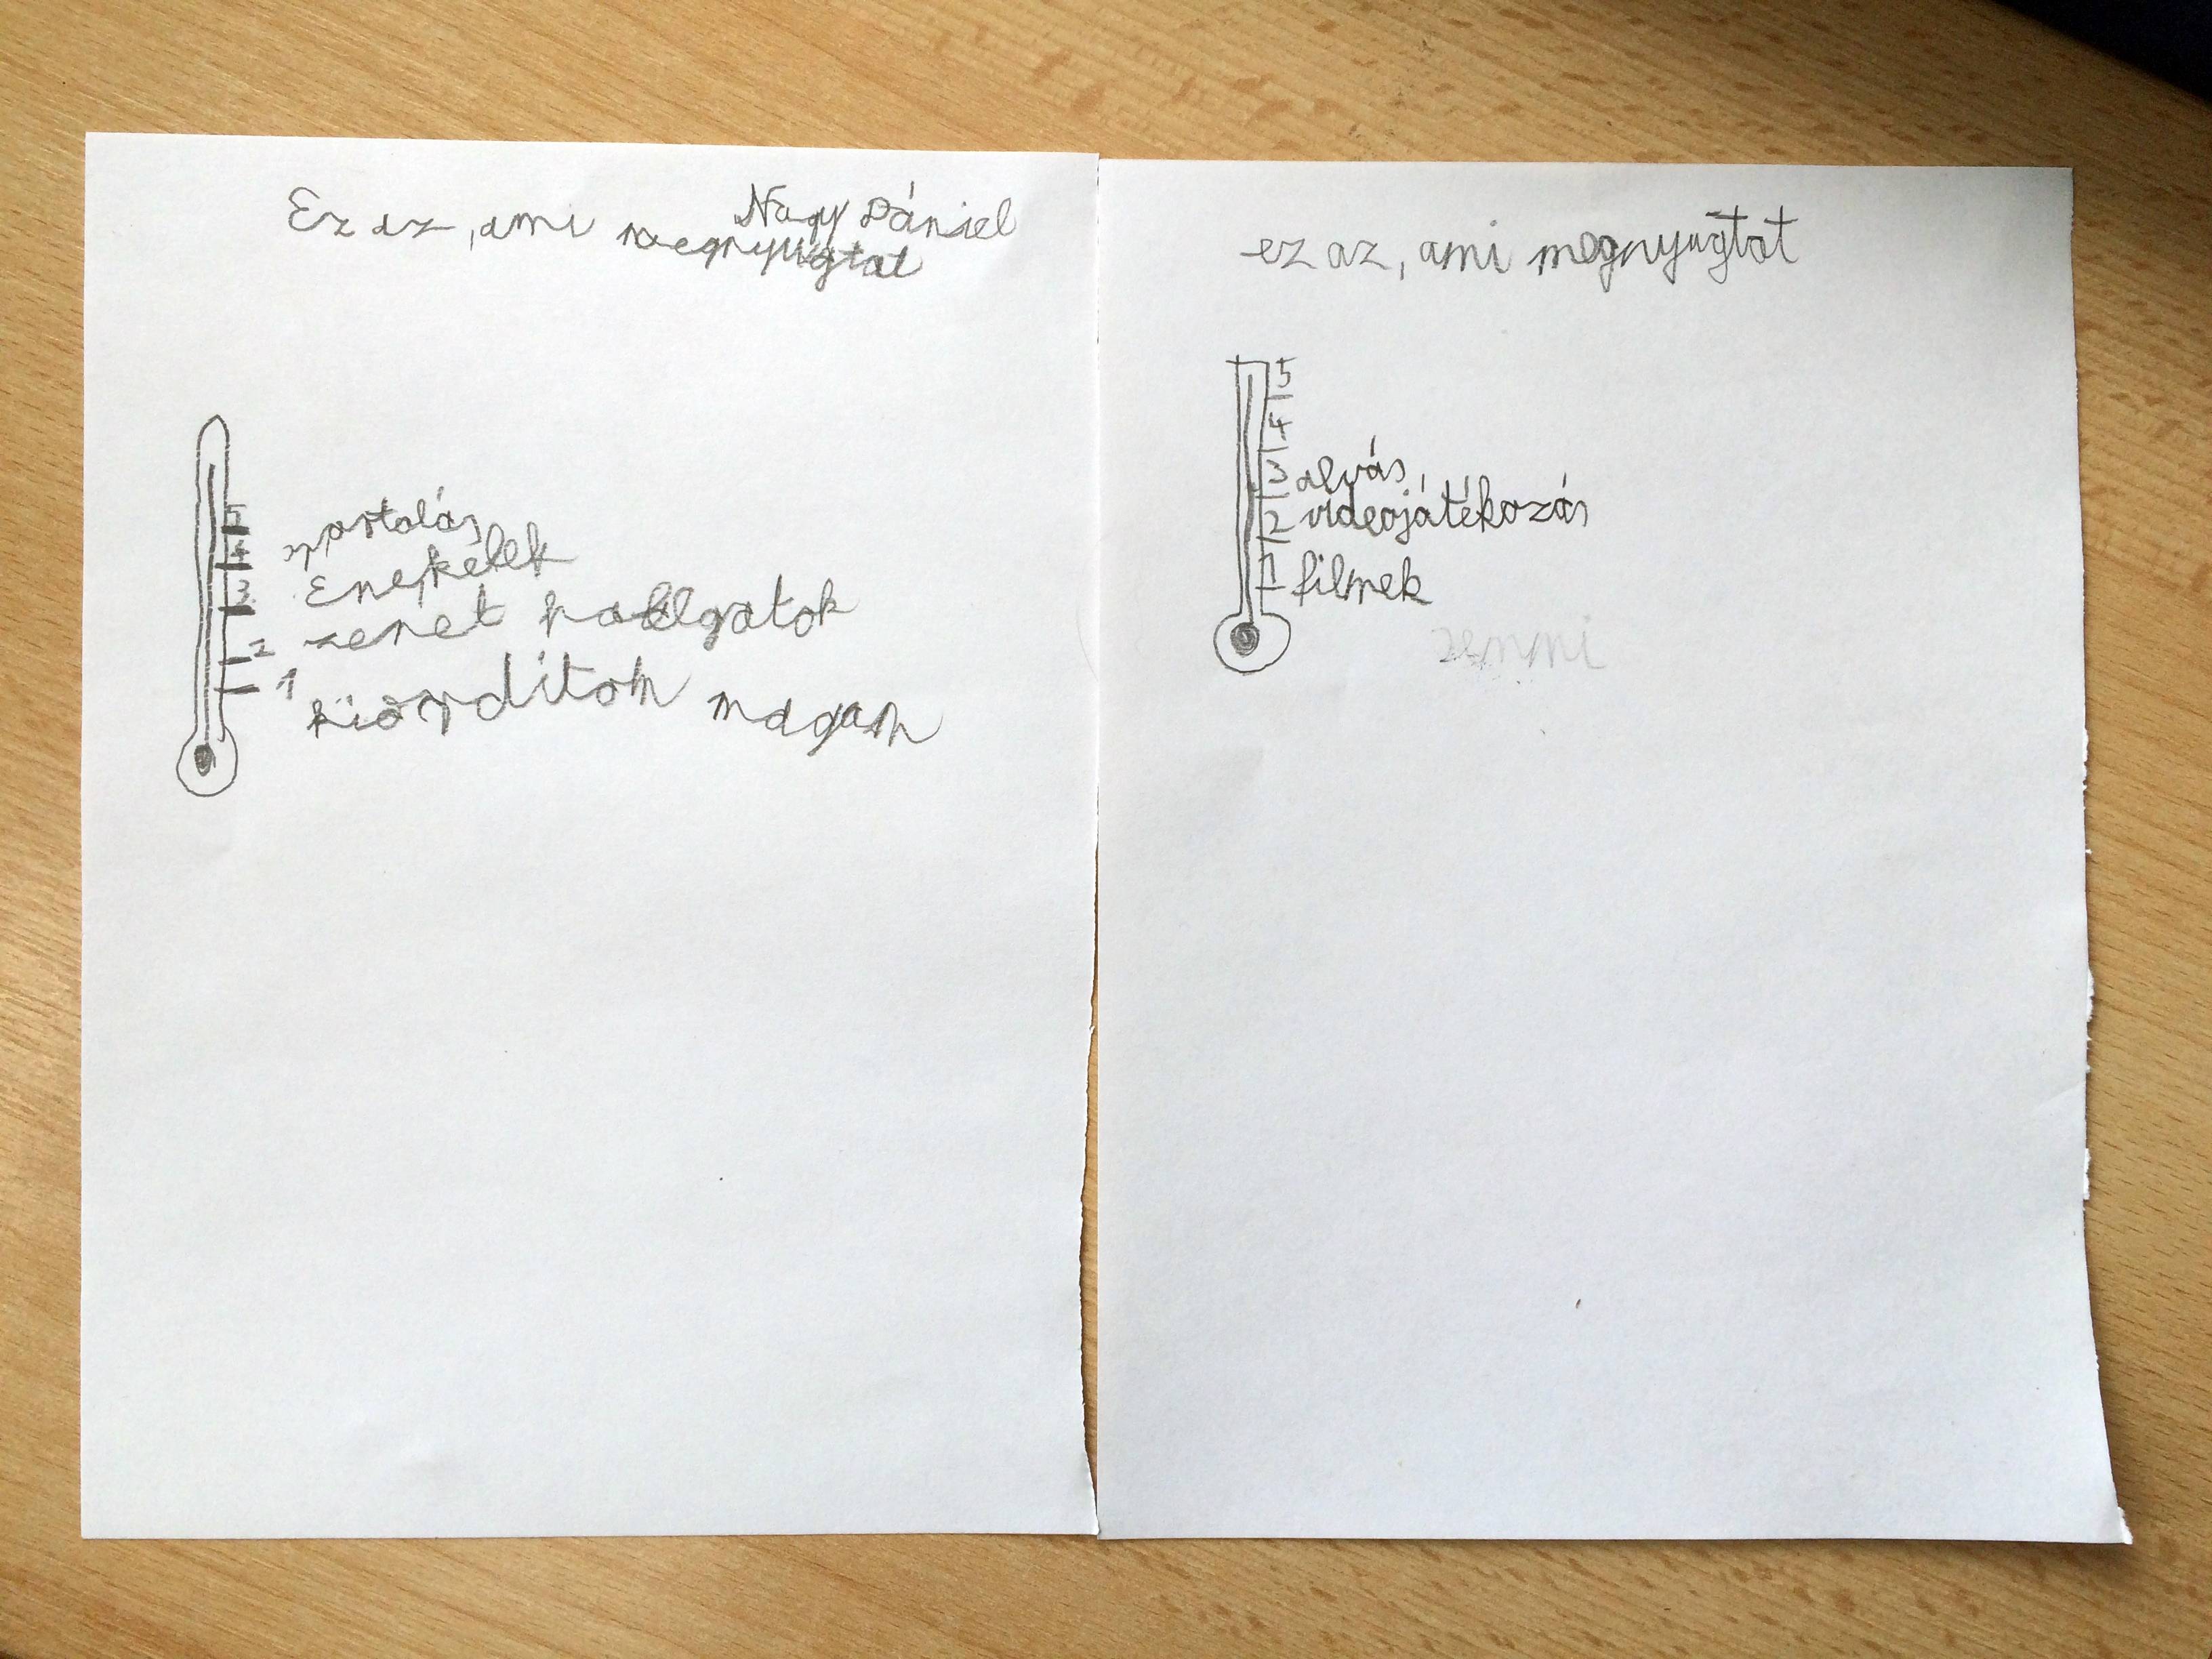 Nagy Dániel
Ez az, ami megnyugtat
5
4
3
2
1
sportolás
Énekelek
zenét hallgatok
kiordítom magam
ez az, ami megnyugtat
5
4
3 alvás,
2 videojátékozás
1 filmek